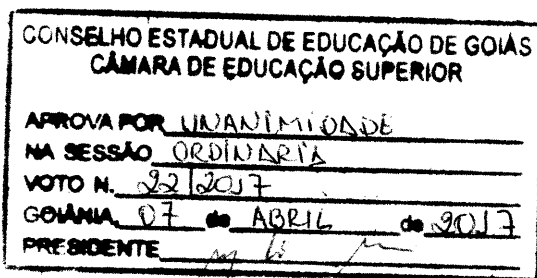 CONSELHO ESTADUAL DE EDUCAÇÃO DE GOIÁS
CÂMARA DE EDUCAÇÃO SUPERIOR
APROVA POR UNANIMIDADE
NA SESSÃO ORDINARIA
VOTO N. 22/2017
GOIÂNIA, 07 de ABRIL de 2017
PRESIDENTE